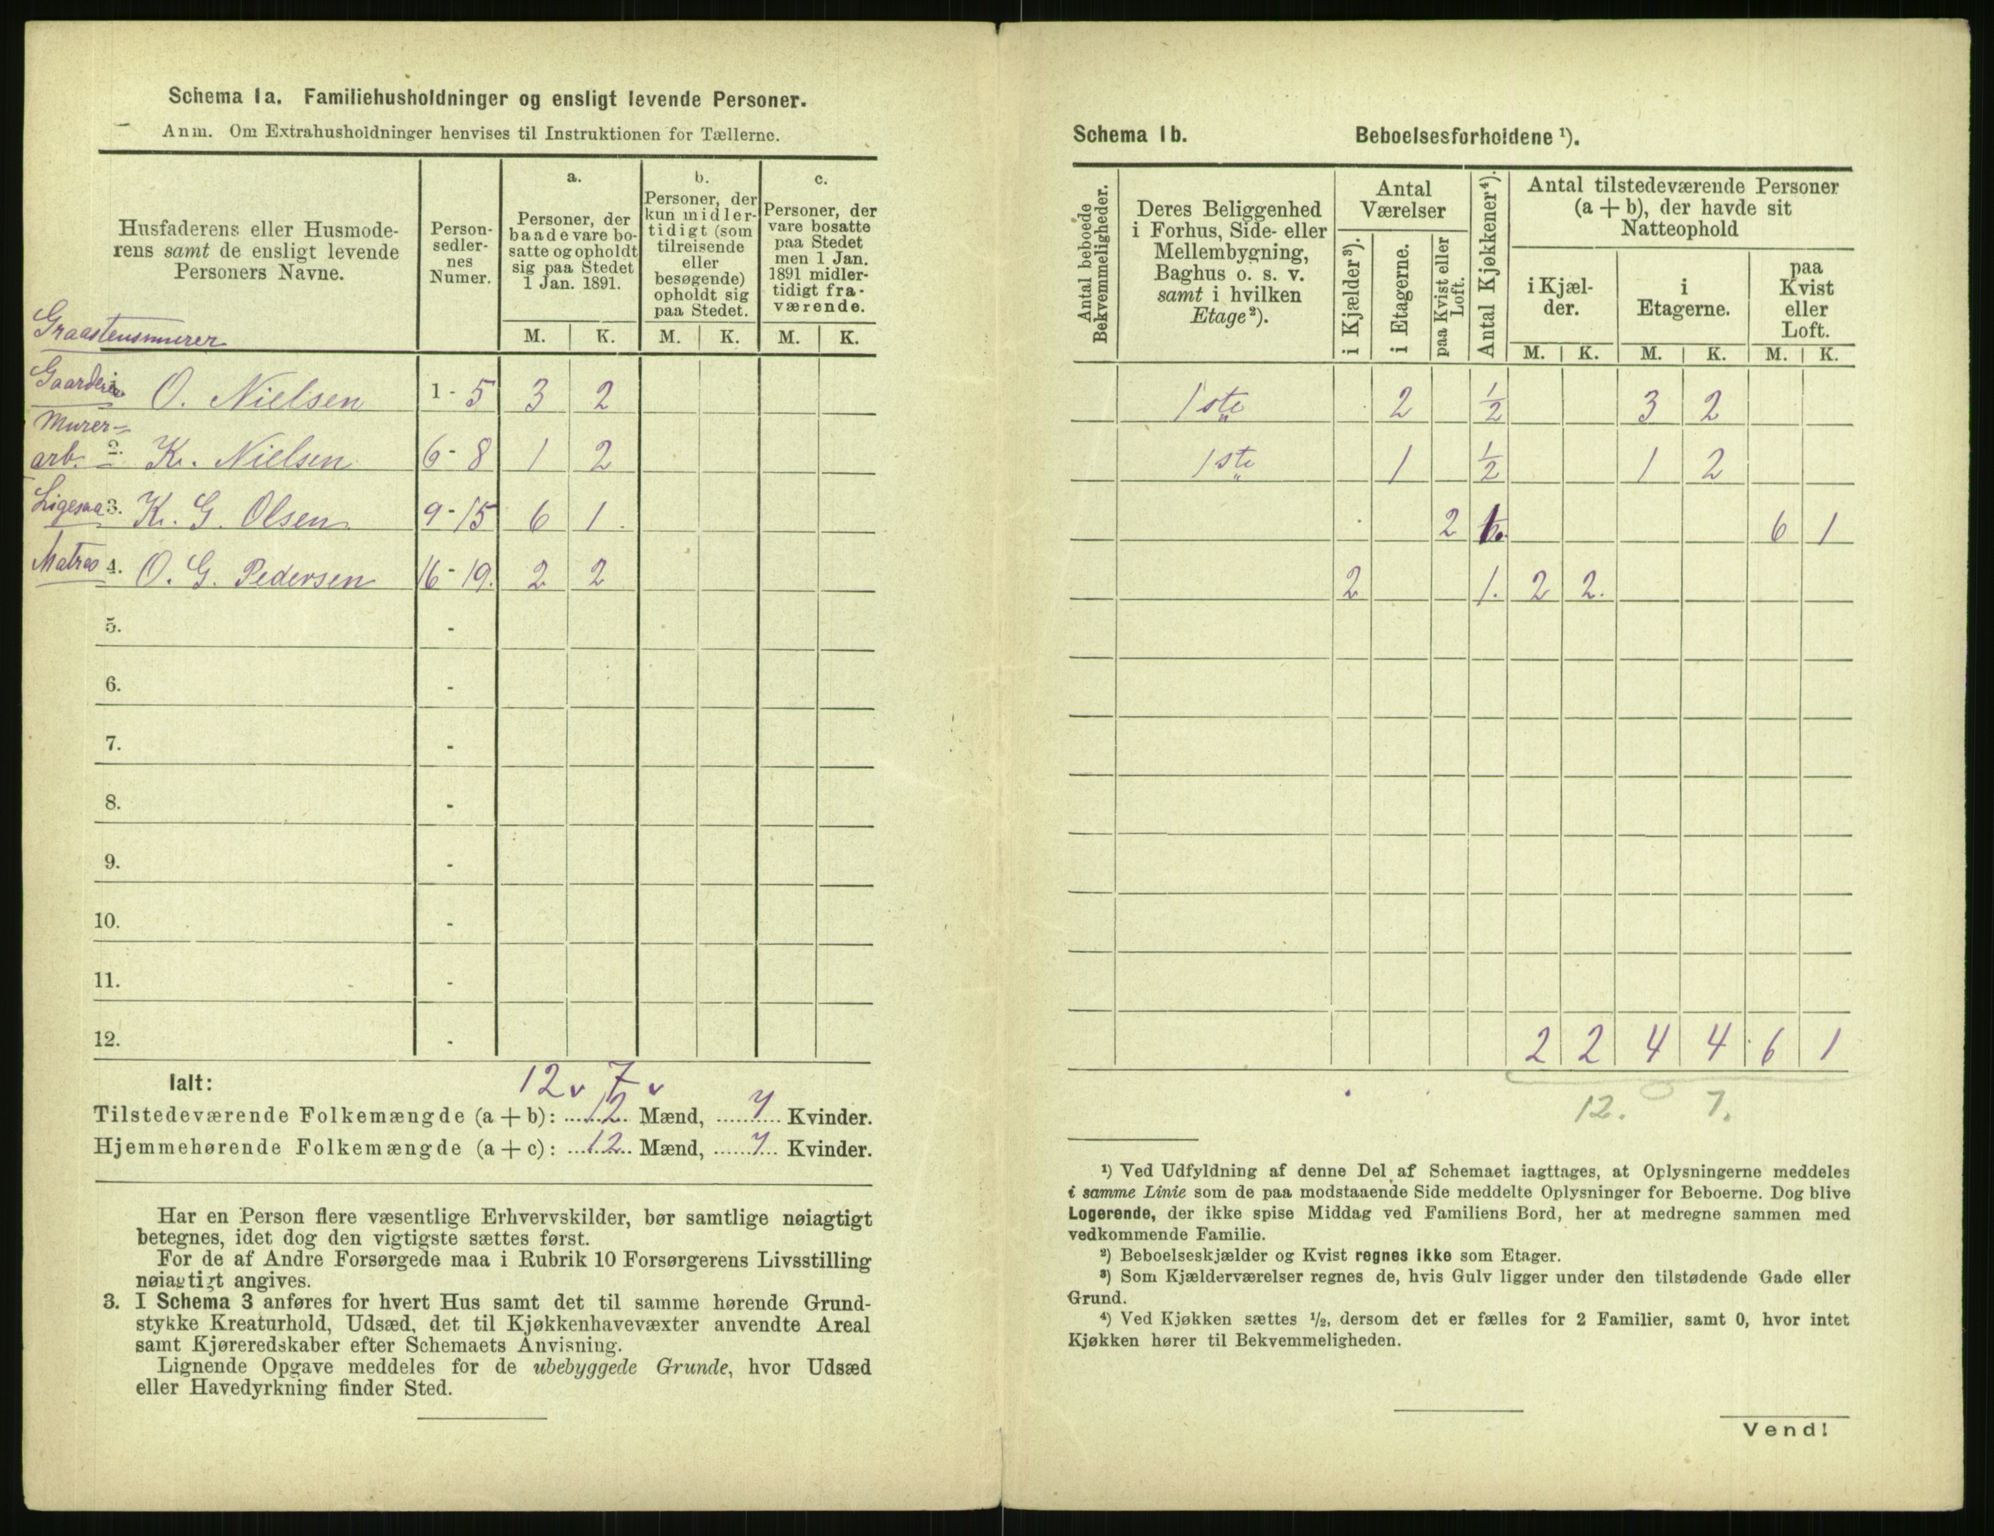 Schema 1a. Familiehusholdninger og ensligt levende Personer.
Anm. Om Extrahusholdninger henvises til Instruktionen for Tællerne.
Husfaderens eller Husmode-
rens samt de ensligt levende
Personers Navne.
Person-
sedler-
nes
Numer.
a.
Personer, der
baade vare bo-
satte og opholdt
sig paa Stedet
1 Jan. 1891.
b.
Personer, der
kun midler-
tidigt (som
tilreisende
eller
besøgende)
opholdt sig
paa Stedet.
c.
Personer, der
vare bosatte
paa Stedet
men 1 Jan.
1891 midler-
tidigt fra-
værende.
M. K. M. K. M. K.
Graastensmurer
Gaardeier O. Nielsen 1 - 5 3 2
Murer-
arb. 2. K. Nielsen 6 - 8 1 2
Ligesaa 3. K. G. Olsen 9 - 15 6 1
Matros 4. O. G. Pedersen 16 - 19. 2 2
5. -
6. -
7. -
8. -
9. -
10. -
11. -
12. -
Ialt: 12 v 7 v
Tilstedeværende Folkemængde (a + b): 12 Mænd, 7 Kvinder.
Hjemmehørende Folkemængde (a + c): 12 Mænd, 7 Kvinder.
Har en Person flere væsentlige Erhvervskilder, bør samtlige nøiagtigt
betegnes, idet dog den vigtigste sættes først.
For de af Andre Forsørgede maa i Rubrik 10 Forsørgerens Livsstilling
nøiagtigt angives.
3. I Schema 3 anføres for hvert Hus samt det til samme hørende Grund-
stykke Kreaturhold, Udsæd, det til Kjøkkenhavevæxter anvendte Areal
samt Kjøreredskaber efter Schemaets Anvisning.
Lignende Opgave meddeles for de ubebyggede Grunde, hvor Udsæd
eller Havedyrkning finder Sted.
Schema 1b. Beboelsesforholdene ¹).
Antal beboede
Bekvemmeligheder.
Deres Beliggenhed
i Forhus, Side- eller
Mellembygning,
Baghus o. s. v.
samt i hvilken
Etage²).
Antal
Værelser
i Kjælder³).
i Etagerne.
paa Kvist eller
Loft.
Antal Kjøkkener⁴).
Antal tilstedeværende Personer
(a + b), der havde sit
Natteophold
i Kjæl-
der.
i
Etagerne.
paa
Kvist
eller
Loft.
M. K. M. K. M. K.
1ste 2 ½ 3 2
1ste 1 ½ 1 2
2 1. 6 1
2 1. 2 2.
2 2 4 4 6 1
12. 7.
¹) Ved Udfyldning af denne Del af Schemaet iagttages, at Oplysningerne meddeles
i samme Linie som de paa modstaaende Side meddelte Oplysninger for Beboerne. Dog blive
Logerende, der ikke spise Middag ved Familiens Bord, her at medregne sammen med
vedkommende Familie.
²) Beboelseskjælder og Kvist regnes ikke som Etager.
³) Som Kjælderværelser regnes de, hvis Gulv ligger under den tilstødende Gade eller
Grund.
⁴) Ved Kjøkken sættes ½, dersom det er fælles for 2 Familier, samt 0, hvor intet
Kjøkken hører til Bekvemmeligheden.
Vend!